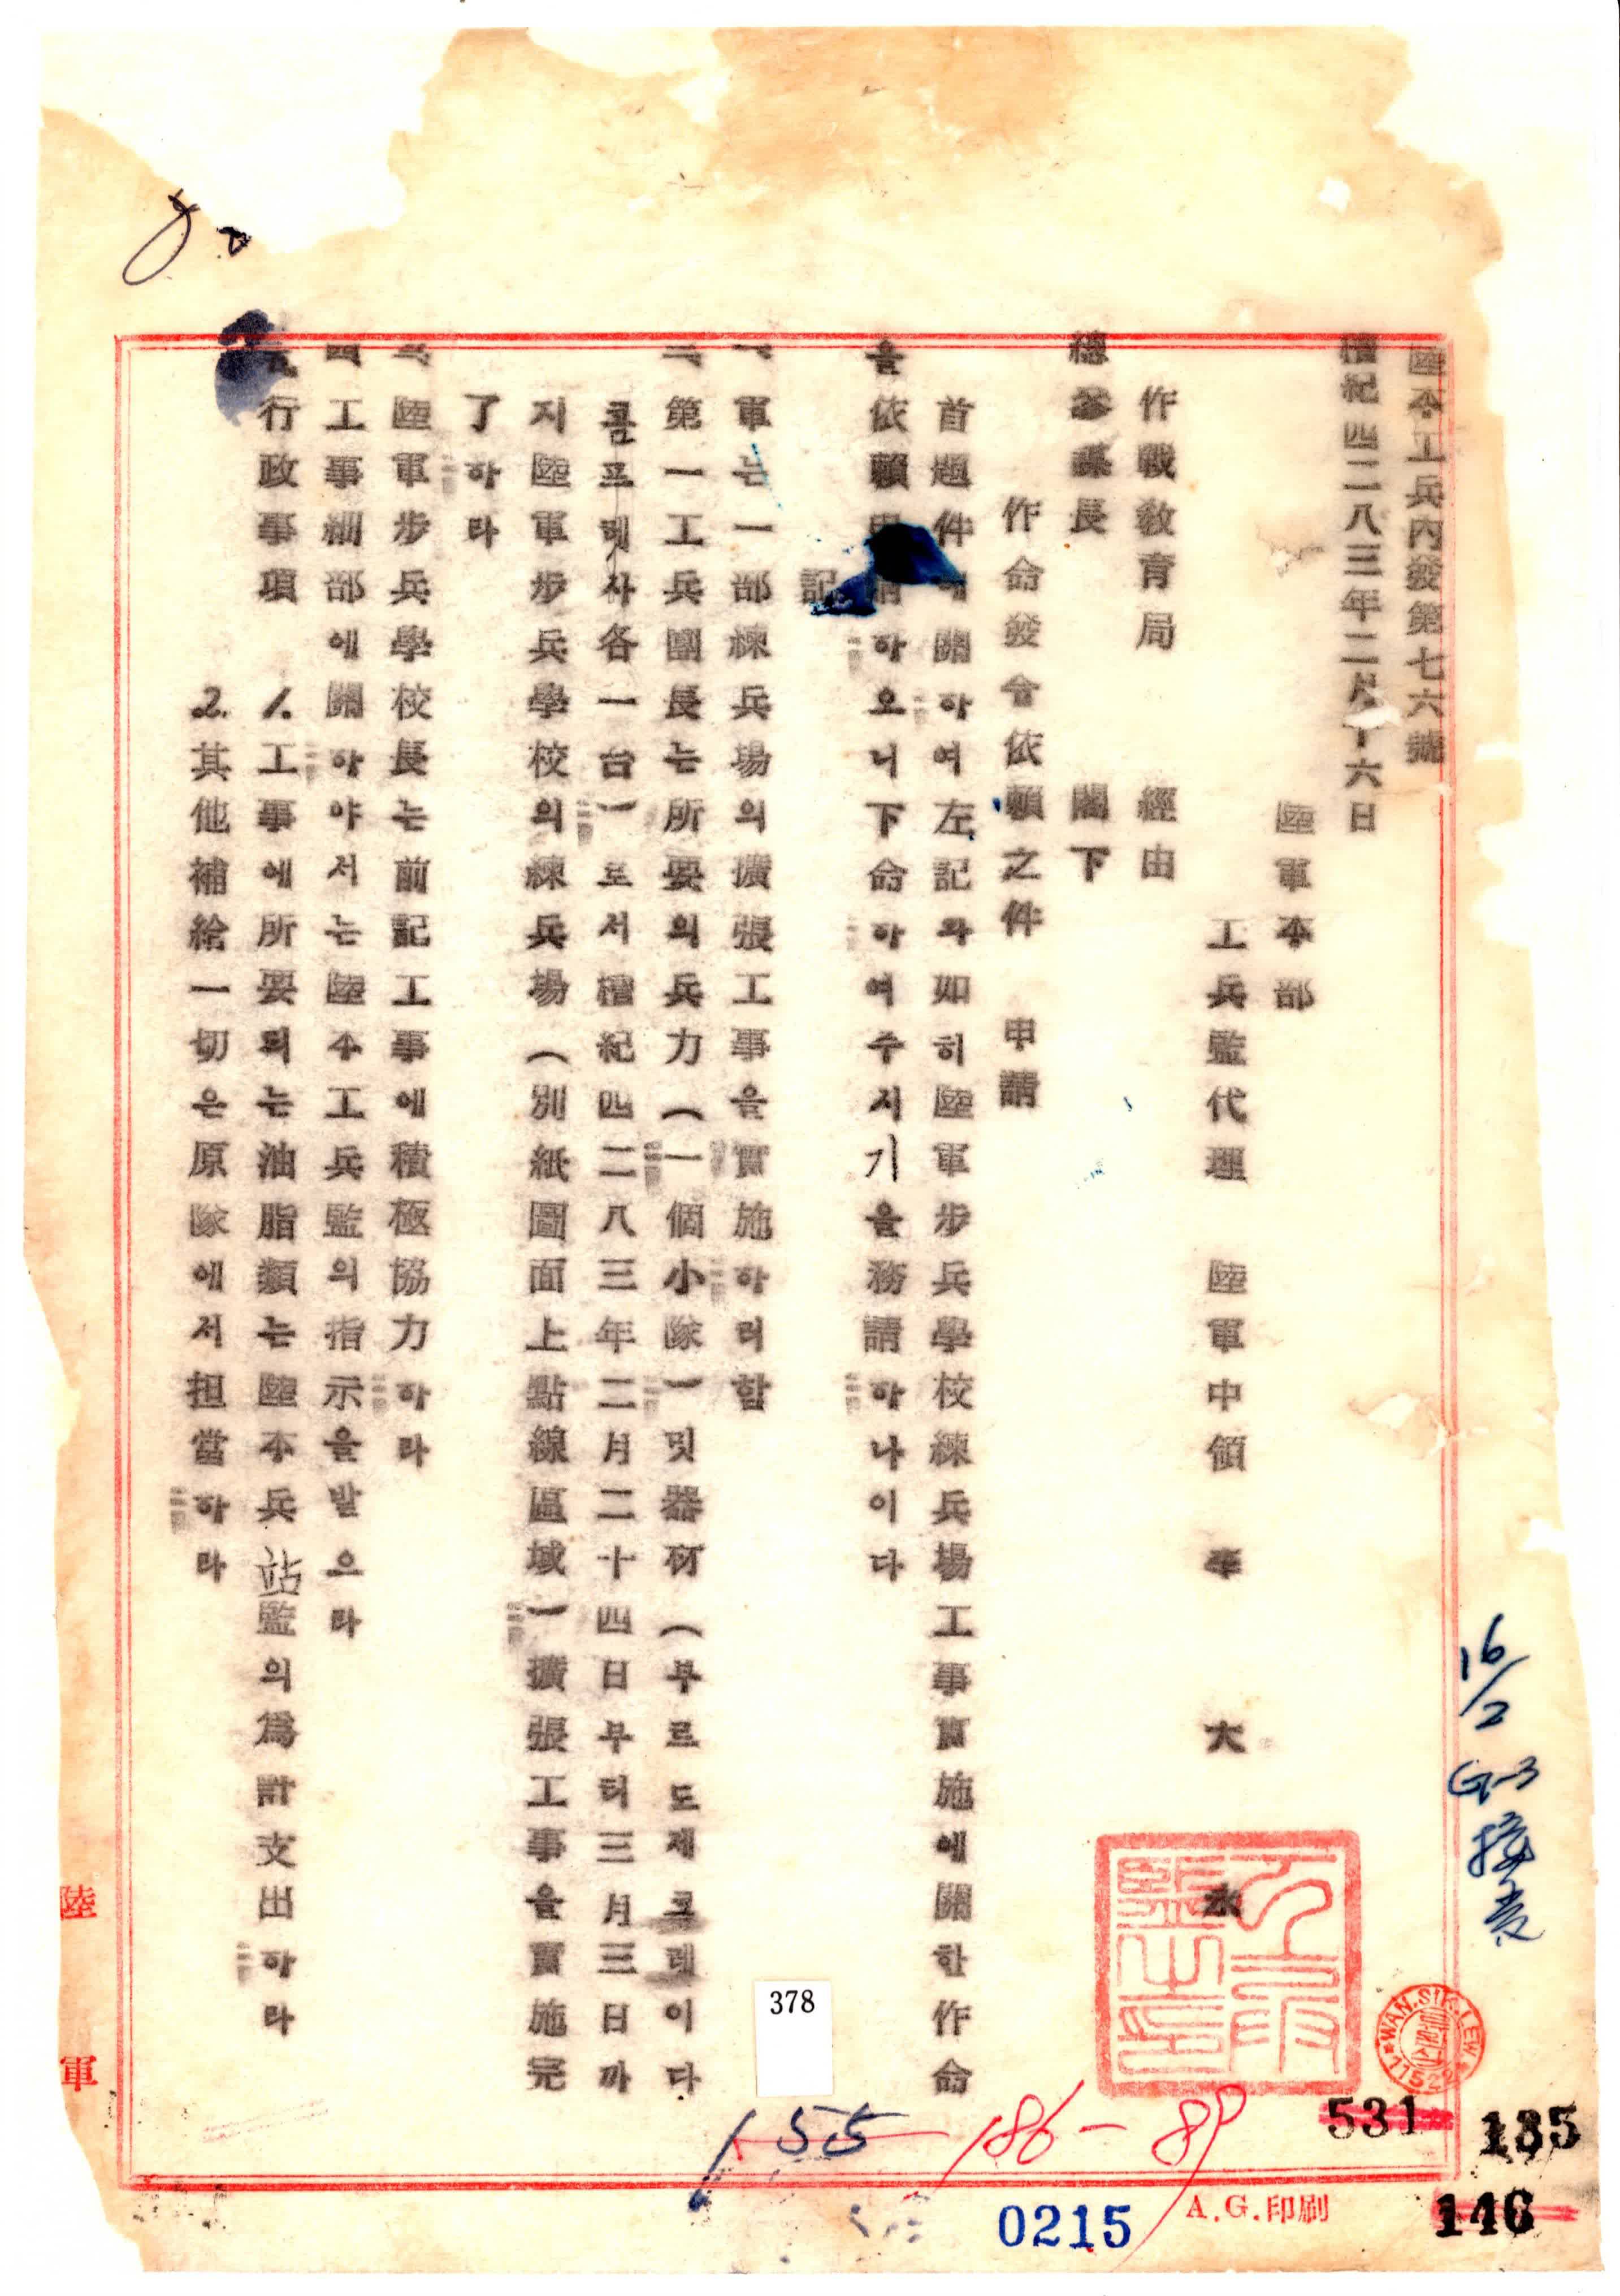 陸本工兵內發第七六號
檀紀四二八三年二月十六日
陸軍本部
工兵監代理 陸軍中領 李 大 永
作戰敎育局 經由
總參謀長 閣下
作命發令依賴之件 申請
首題件에關하여左記와如히陸軍步兵學校練兵場工事實施에關한作命
을依賴申請하오니下命하여주시기을務請하나이다
記
一、軍는一部練兵場의擴張工事을實施하려함
二、第一工兵團長는所要의兵力(一個小隊)및器材(부르도제코레이다
콤프렛사各一台)로서檀紀四二八三年二月二十四日부터三月三日까
지陸軍步兵學校의練兵場(別紙圖面上點線區域)擴張工事을實施完
了하라
三、陸軍步兵學校長는前記工事에積極協力하라
四、工事細部에關하야서는陸本工兵監의指示을받으라
五、行政事項
1.工事에所要되는油脂類는陸本兵站監의爲計支出하라
2.其他補給一切은原隊에서担當하라
16/2 G-3 接
WAN.SIK.LEW
11522
378
155
186-89
531
135
146
0215
A.G.印刷
陸軍